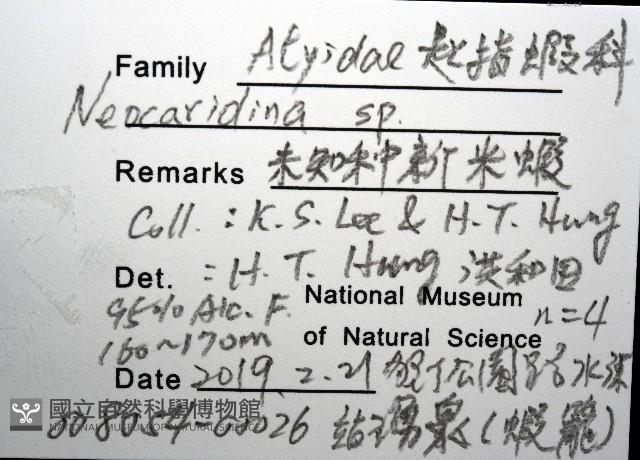 Family Atyidae 匙指蝦科
Neocaridina sp.
Remarks 未知種新米蝦
Coll. : K. S. Lee & H. T. Hung
Det. : H. T. Hung 洪和田
95% Alc. F. National Museum n=4
160~170m of Natural Science
Date 2019. 2. 21 公園 水源
國立自然科學博物館
NATIONAL MUSEUM OF NATURAL SCIENCE
026 湧泉(蝦籠)